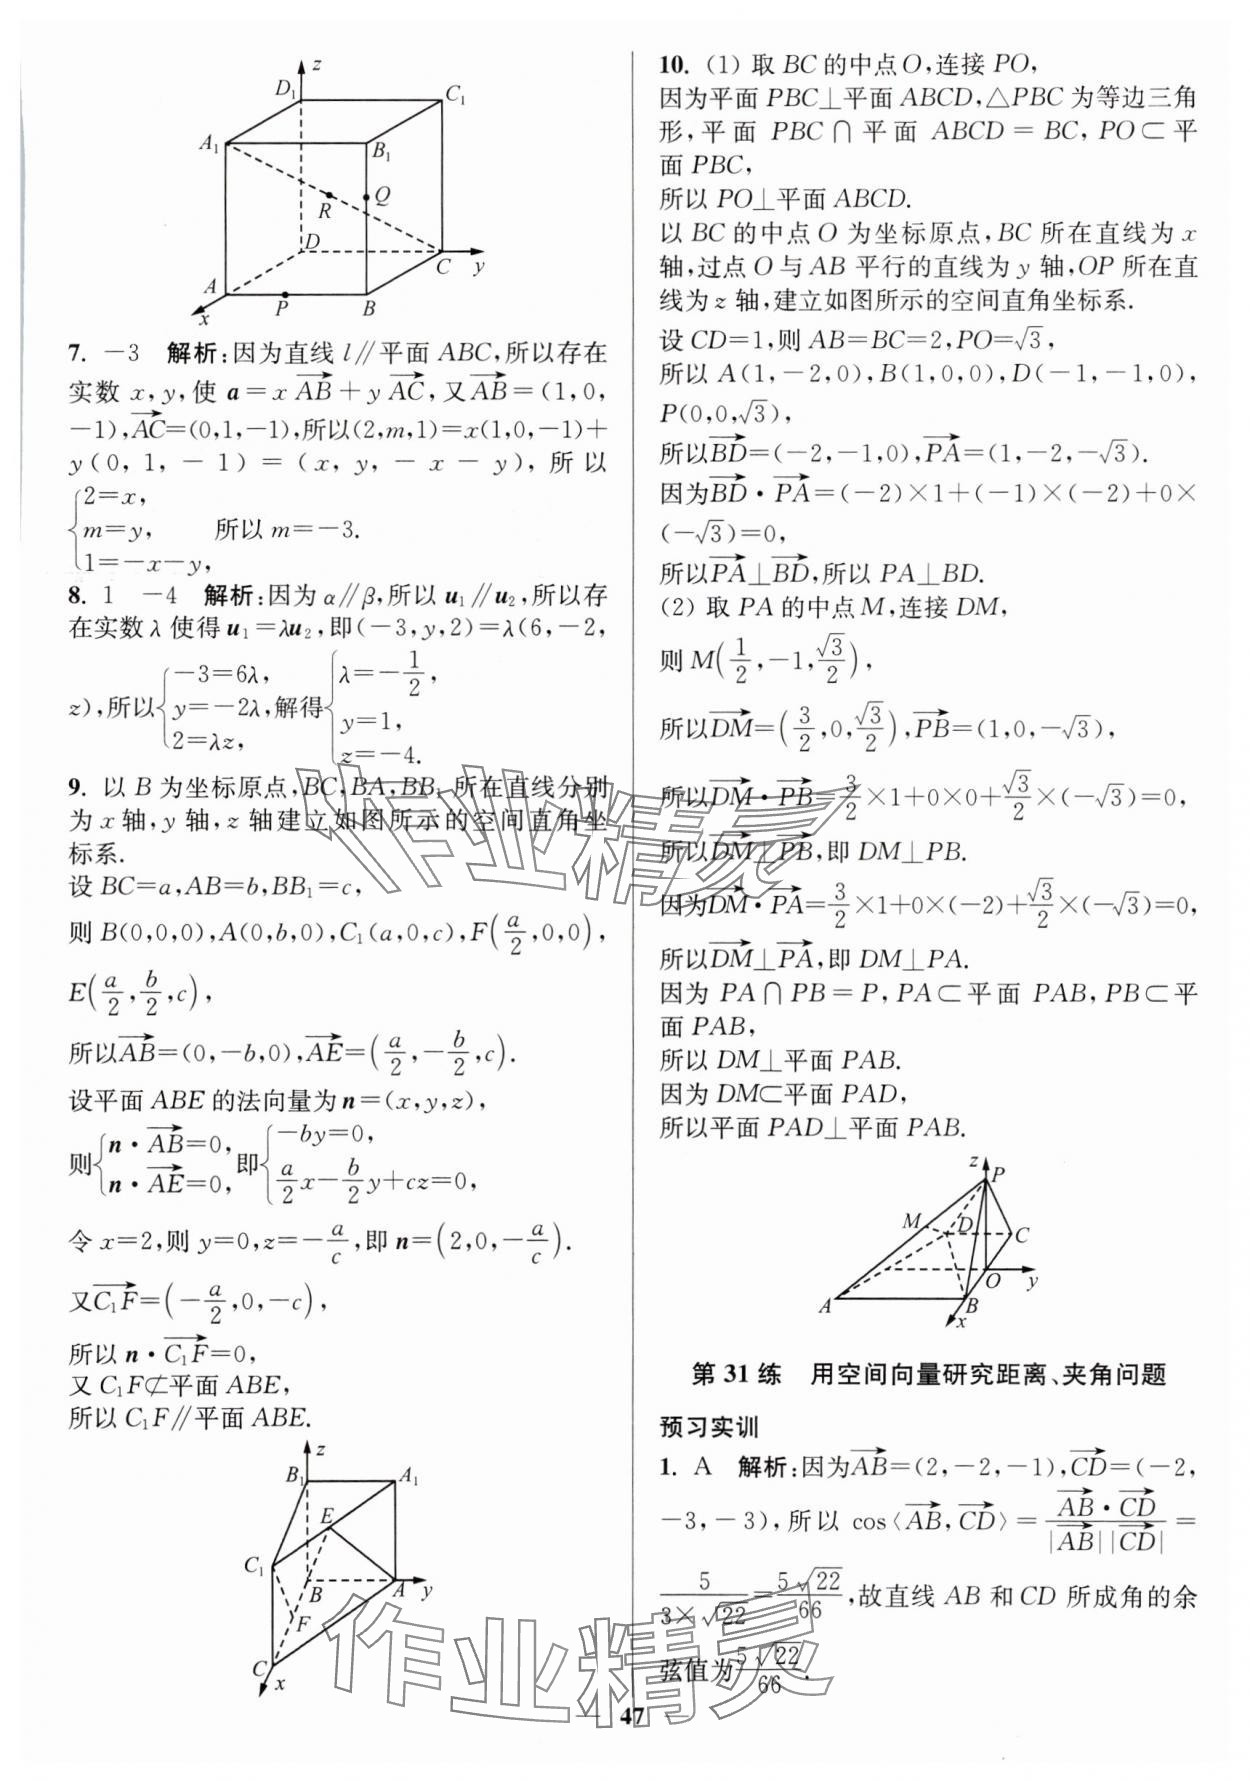 z
D₁
C₁
A₁
B₁
Q
R
D
C
y
A
P
B
x
7. －3　解析:因为直线 l∥平面 ABC,所以存在
实数 x,y,使 a＝x AB→＋y AC→,又AB→＝(1,0,
－1),AC→＝(0,1,－1),所以(2,m,1)＝x(1,0,－1)＋
y(0,1,－1)＝(x,y,－x－y),所以
{2＝x,
m＝y,　　所以 m＝－3.
1＝－x－y,
8. 1　－4　解析:因为 α∥β,所以 u₁∥u₂,所以存
在实数 λ 使得 u₁＝λu₂,即(－3,y,2)＝λ(6,－2,
z),所以{－3＝6λ, y＝－2λ, 2＝λz, 解得{λ＝－1/2, y＝1, z＝－4.
9. 以 B 为坐标原点,BC,BA,BB₁ 所在直线分别
为 x 轴,y 轴,z 轴建立如图所示的空间直角坐
标系.
设 BC＝a,AB＝b,BB₁＝c,
则 B(0,0,0),A(0,b,0),C₁(a,0,c),F(a/2,0,0),
E(a/2,b/2,c),
所以AB→＝(0,－b,0),AE→＝(a/2,－b/2,c).
设平面 ABE 的法向量为 n＝(x,y,z),
则{n·AB→＝0, n·AE→＝0, 即{－by＝0, a/2x－b/2y＋cz＝0,
令 x＝2,则 y＝0,z＝－a/c,即 n＝(2,0,－a/c).
又C₁F→＝(－a/2,0,－c),
所以 n·C₁F→＝0,
又 C₁F⊄平面 ABE,
所以 C₁F∥平面 ABE.
z
B₁
A₁
E
C₁
B
A
y
F
C
x
10. (1) 取 BC 的中点 O,连接 PO,
因为平面 PBC⊥平面 ABCD,△PBC 为等边三角
形,平面 PBC∩平面 ABCD＝BC,PO⊂平
面 PBC,
所以 PO⊥平面 ABCD.
以 BC 的中点 O 为坐标原点,BC 所在直线为 x
轴,过点 O 与 AB 平行的直线为 y 轴,OP 所在直
线为 z 轴,建立如图所示的空间直角坐标系.
设 CD＝1,则 AB＝BC＝2,PO＝√3,
所以 A(1,－2,0),B(1,0,0),D(－1,－1,0),
P(0,0,√3),
所以BD→＝(－2,－1,0),PA→＝(1,－2,－√3).
因为BD→·PA→＝(－2)×1＋(－1)×(－2)＋0×
(－√3)＝0,
所以PA→⊥BD→,所以 PA⊥BD.
(2) 取 PA 的中点 M,连接 DM,
则 M(1/2,－1,√3/2),
所以DM→＝(3/2,0,√3/2),PB→＝(1,0,－√3),
所以DM→·PB→＝3/2×1＋0×0＋√3/2×(－√3)＝0,
所以DM→⊥PB→,即 DM⊥PB.
因为DM→·PA→＝3/2×1＋0×(－2)＋√3/2×(－√3)＝0,
所以DM→⊥PA→,即 DM⊥PA.
因为 PA∩PB＝P,PA⊂平面 PAB,PB⊂平
面 PAB,
所以 DM⊥平面 PAB.
因为 DM⊂平面 PAD,
所以平面 PAD⊥平面 PAB.
z
P
M
D
C
O
y
A
B
x
第 31 练　用空间向量研究距离、夹角问题
预习实训
1. A　解析:因为AB→＝(2,－2,－1),CD→＝(－2,
－3,－3),所以 cos⟨AB→,CD→⟩＝AB→·CD→/|AB→||CD→|＝
5/(3×√22)＝5√22/66,故直线 AB 和 CD 所成角的余
弦值为5√22/66.
— 47 —
作业精灵
作业精灵